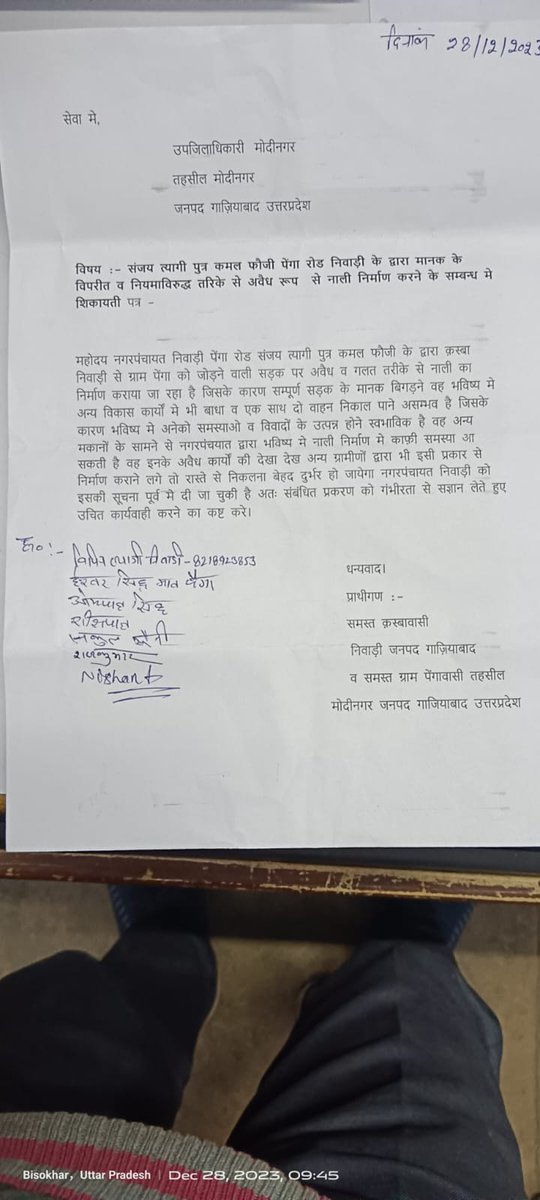 दिनांक 28/12/2023
सेवा मे,
उपजिलाधिकारी मोदीनगर
तहसील मोदीनगर
जनपद गाज़ियाबाद उत्तरप्रदेश
विषय :- संजय त्यागी पुत्र कमल फौजी पेंगा रोड निवाड़ी के द्वारा मानक के
विपरीत व नियमाविरुद्ध तरिके से अवैध रूप से नाली निर्माण करने के सम्बन्ध मे
शिकायती पत्र -
महोदय नगरपंचायत निवाड़ी पेंगा रोड संजय त्यागी पुत्र कमल फौजी के द्वारा क़स्बा
निवाड़ी से ग्राम पेंगा को जोड़ने वाली सड़क पर अवैध व गलत तरीके से नाली का
निर्माण कराया जा रहा है जिसके कारण सम्पूर्ण सड़क के मानक बिगड़ने वह भविष्य मे
अन्य विकास कार्यों मे भी बाधा व एक साथ दो वाहन निकाल पाने असम्भव है जिसके
कारण भविष्य मे अनेको समस्याओ व विवादों के उत्पन्न होने स्वभाविक है वह अन्य
मकानों के सामने से नगरपंचयात द्वारा भविष्य मे नाली निर्माण मे काफ़ी समस्या आ
सकती है वह इनके अवैध कार्यो की देखा देख अन्य ग्रामीणों द्वारा भी इसी प्रकार से
निर्माण कराने लगे तो रास्ते से निकलना बेहद दुर्भर हो जायेगा नगरपंचायत निवाड़ी को
इसकी सूचना पूर्व मे दी जा चुकी है अतः संबंधित प्रकरण को गंभीरता से सज्ञान लेते हुए
उचित कार्यवाही करने का कष्ट करे।
ह० :-
विपिन त्यागी निवाड़ी - 8218923853
सिंह
ओमपाल सिंह
राजकुमार
Nishant
धन्यवाद।
प्राथीगण :-
समस्त क़स्बावासी
निवाड़ी जनपद गाज़ियाबाद
व समस्त ग्राम पेंगावासी तहसील
मोदीनगर जनपद गाजियाबाद उत्तरप्रदेश
Bisokhar, Uttar Pradesh | Dec 28, 2023, 09:45